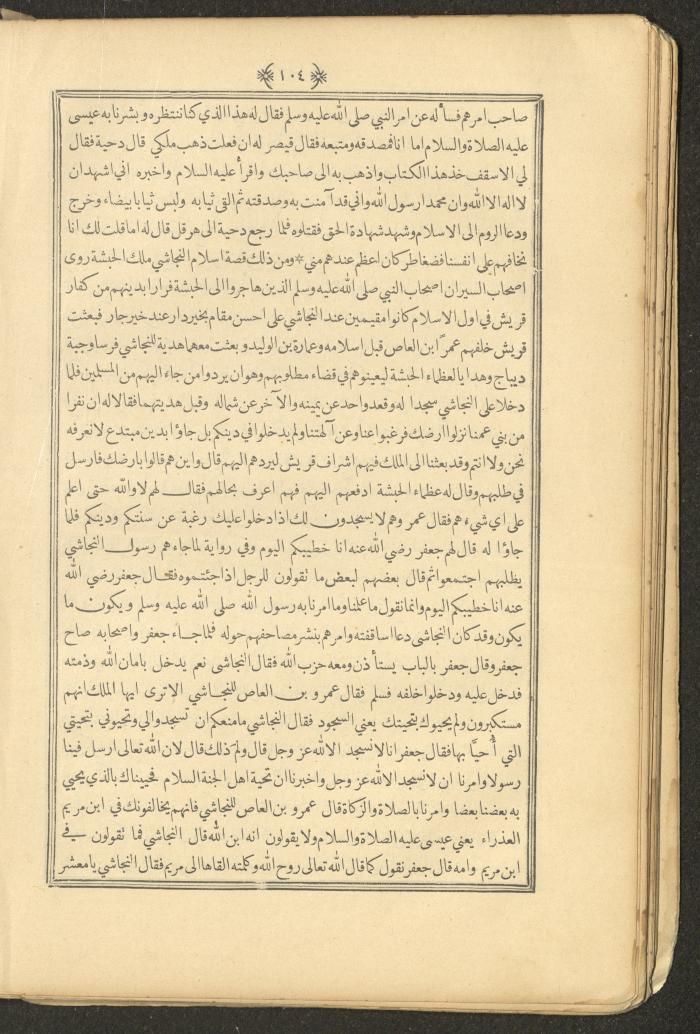 ١٠٤
صاحب امرهم فسأله عن امر النبي صلى الله عليه وسلم فقال له هذا الذي كنا ننتظره وبشرنا به عيسى
عليه الصلاة والسلام اما انا فمصدقه ومتبعه فقال قيصر له ان فعلت ذهب ملكي قال دحية فقال
لي الاسقف خذ هذا الكتاب واذهب به الى صاحبك واقرأ عليه السلام واخبره اني اشهد ان
لا اله الا الله وان محمد ارسول الله واني قد آمنت به وصدقته ثم القى ثيابه ولبس ثيابا بيضاء وخرج
ودعا الروم الى الاسلام وشهد شهادة الحق فقتلوه فلما رجع دحية الى هرقل قال له اما قلت لك انا
نخافهم على انفسنا فضغاطر كان اعظم عندهم مني * ومن ذلك قصة اسلام النجاشي ملك الحبشة روى
اصحاب السير ان اصحاب النبي صلى الله عليه وسلم الذين هاجروا الى الحبشة فرارا بدينهم من كفار
قريش في اول الاسلام كانوا مقيمين عند النجاشي على احسن مقام بخير دار عند خير جار فبعثت
قريش خلفهم عمرًا ابن العاص قبل اسلامه وعمارة بن الوليد وبعثت معهما هدية للنجاشي فرسا وجبة
ديباج وهدايا لعظماء الحبشة ليعينوهم في قضاء مطلوبهم وهو ان يردوا من جاء اليهم من المسلمين فلما
دخلا على النجاشي سجدا له وقعد واحد عن يمينه والآخر عن شماله وقبل هديتهما فقالا له ان نفرا
من بني عمنا نزلوا ارضك فرغبوا عنا وعن آلهتنا ولم يدخلوا في دينكم بل جاؤا بدين مبتدع لا نعرفه
نحن ولا انتم وقد بعثنا الى الملك فيهم اشراف قريش ليردهم اليهم قال واين هم قالوا بارضك فارسل
في طلبهم وقال له عظماء الحبشة ادفعهم اليهم فهم اعرف بحالهم فقال لهم لا والله حتى اعلم
على اي شيء هم فقال عمر وهم لا يسجدون لك اذا دخلوا عليك رغبة عن سنتكم ودينكم فلما
جاؤا له قال لهم جعفر رضي الله عنه انا خطيبكم اليوم وفي رواية لما جاءهم رسول النجاشي
يطلبهم اجتمعوا ثم قال بعضهم لبعض ما تقولون للرجل اذا جئتموه فقال جعفر رضي الله
عنه انا خطيبكم اليوم وانما نقول ما علمنا وما امرنا به رسول الله صلى الله عليه وسلم ويكون ما
يكون وقد كان النجاشي دعا اساقفته وامرهم بنشر مصاحفهم حوله فلما جاء جعفر واصحابه صاح
جعفر وقال جعفر بالباب يستأذن ومعه حزب الله فقال النجاشي نعم يدخل بامان الله وذمته
فدخل عليه ودخلوا خلفه فسلم فقال عمرو بن العاص للنجاشي الا ترى ايها الملك انهم
مستكبرون ولم يحيوك بتحيتك يعني السجود فقال النجاشي ما منعكم ان تسجدوا لي وتحيوني بتحيتي
التي أُحيَّا بها فقال جعفر انا لا نسجد الا لله عز وجل قال ولمَ ذلك قال لان الله تعالى ارسل فينا
رسولا وامرنا ان لا نسجد الا لله عز وجل واخبرنا ان تحية اهل الجنة السلام فحييناك بالذي يحيي
به بعضنا بعضا وامرنا بالصلاة والزكاة قال عمرو بن العاص للنجاشي فانهم يخالفونك في ابن مريم
العذراء يعني عيسى عليه الصلاة والسلام ولا يقولون انه ابن الله قال النجاشي فما تقولون في
ابن مريم وامه قال جعفر نقول كما قال الله تعالى روح الله وكلمته القاها الى مريم فقال النجاشي يا معشر